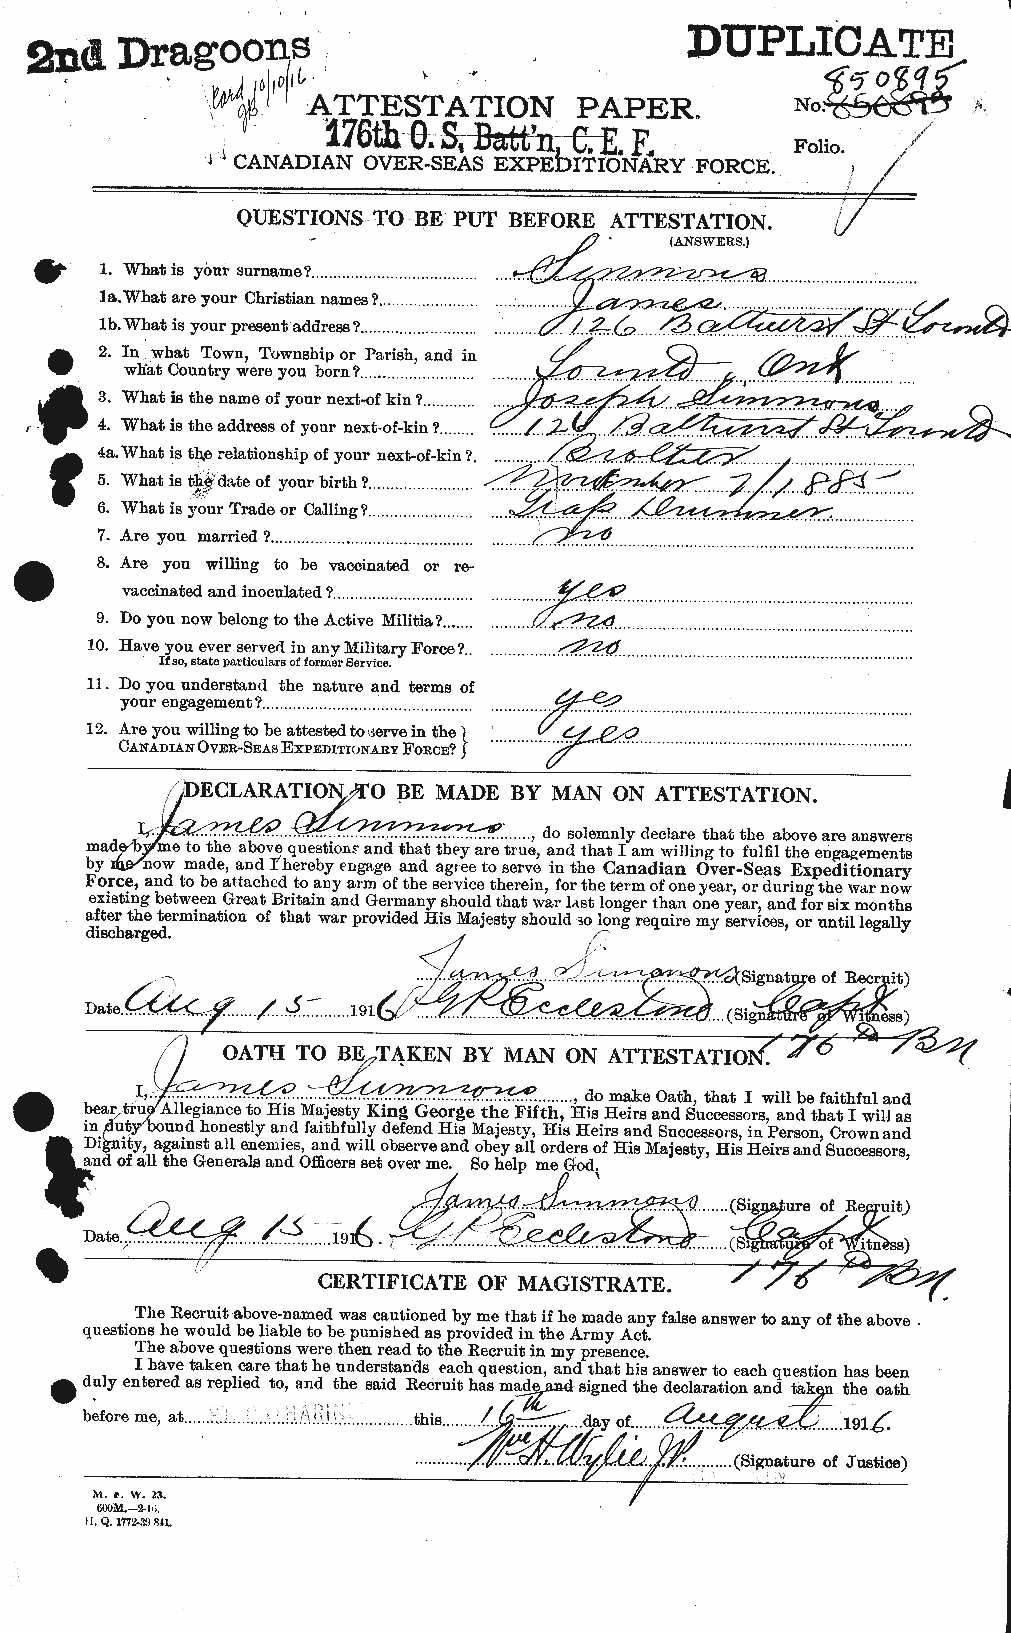 2nd Dragoons
DUPLICATE
Card 10/10/16
850895
ATTESTATION PAPER.
No.
176th O. S. Batt'n, C. E. F.
Folio.
CANADIAN OVER-SEAS EXPEDITIONARY FORCE.
QUESTIONS TO BE PUT BEFORE ATTESTATION.
(ANSWERS.)
1. What is your surname? Simmons
1a. What are your Christian names? James
1b. What is your present address? 126 Bathurst St Toronto
2. In what Town, Township or Parish, and in
what Country were you born? Toronto, Ont
3. What is the name of your next-of kin? Joseph Simmons
4. What is the address of your next-of-kin? 126 Bathurst St Toronto
4a. What is the relationship of your next-of-kin? Brother
5. What is the date of your birth? November 7/1885
6. What is your Trade or Calling? Trap Drummer
7. Are you married? no
8. Are you willing to be vaccinated or re-
vaccinated and inoculated? yes
9. Do you now belong to the Active Militia? no
10. Have you ever served in any Military Force? no
If so, state particulars of former Service.
11. Do you understand the nature and terms of
your engagement? yes
12. Are you willing to be attested to serve in the
CANADIAN OVER-SEAS EXPEDITIONARY FORCE? yes
DECLARATION TO BE MADE BY MAN ON ATTESTATION.
I, James Simmons, do solemnly declare that the above are answers
made by me to the above questions and that they are true, and that I am willing to fulfil the engagements
by me now made, and I hereby engage and agree to serve in the Canadian Over-Seas Expeditionary
Force, and to be attached to any arm of the service therein, for the term of one year, or during the war now
existing between Great Britain and Germany should that war last longer than one year, and for six months
after the termination of that war provided His Majesty should so long require my services, or until legally
discharged.
James Simmons (Signature of Recruit)
Date Aug 15 1916 GR Ecclestone Capt (Signature of Witness)
176th BN
OATH TO BE TAKEN BY MAN ON ATTESTATION.
I, James Simmons, do make Oath, that I will be faithful and
bear true Allegiance to His Majesty King George the Fifth, His Heirs and Successors, and that I will as
in duty bound honestly and faithfully defend His Majesty, His Heirs and Successors, in Person, Crown and
Dignity, against all enemies, and will observe and obey all orders of His Majesty, His Heirs and Successors,
and of all the Generals and Officers set over me. So help me God.
James Simmons (Signature of Recruit)
Date Aug 15 1916 GR Ecclestone Capt (Signature of Witness)
176th BN.
CERTIFICATE OF MAGISTRATE.
The Recruit above-named was cautioned by me that if he made any false answer to any of the above
questions he would be liable to be punished as provided in the Army Act.
The above questions were then read to the Recruit in my presence.
I have taken care that he understands each question, and that his answer to each question has been
duly entered as replied to, and the said Recruit has made and signed the declaration and taken the oath
before me, at ST. CATHARINES this 16th day of August 1916.
Wm H. Wylie J.P. (Signature of Justice)
M. F. W. 23.
600M.—2-16.
H. Q. 1772-39 841.